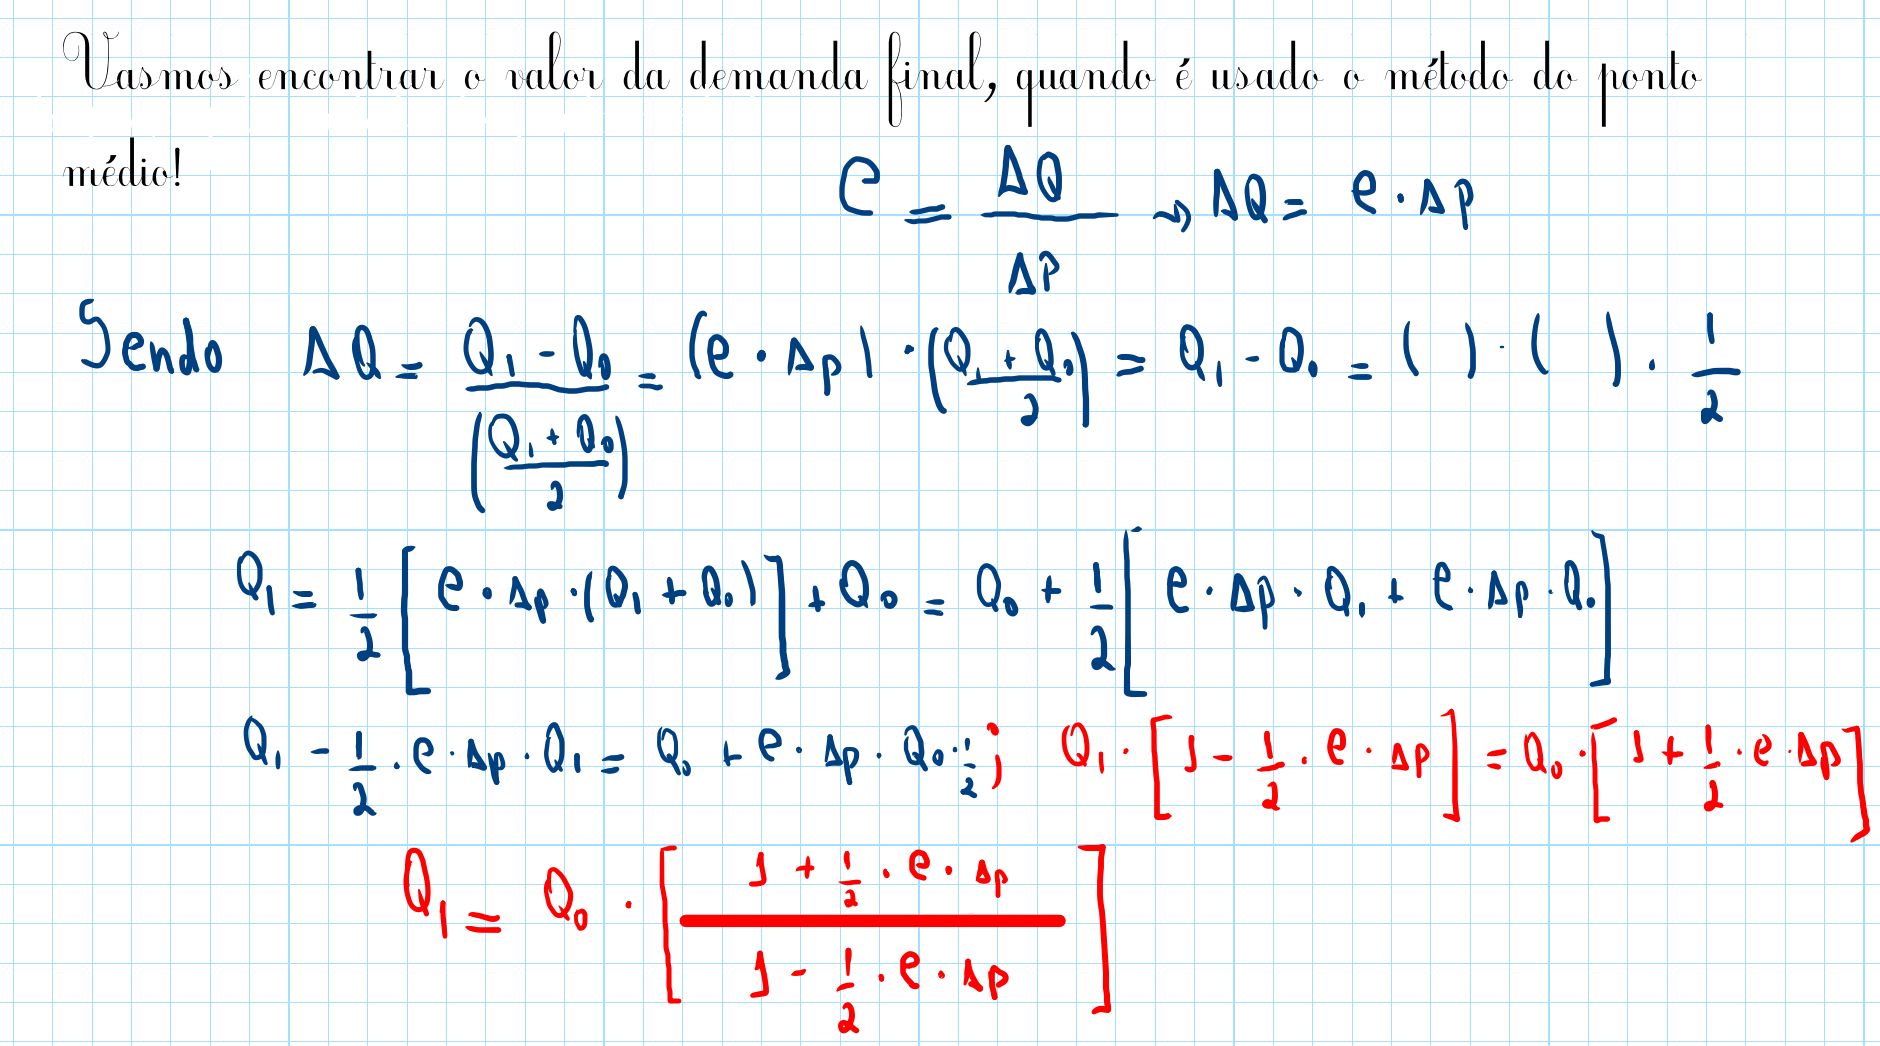 Vasmos encontrar o valor da demanda final, quando é usado o método do ponto
médio!
e = ΔQ / Δp → ΔQ = e · Δp
Sendo ΔQ = (Q₁ - Q₀) / ((Q₁ + Q₀)/2) = (e · Δp) · ((Q₁ + Q₀)/2) = Q₁ - Q₀ = ( ) · ( ) · 1/2
Q₁ = 1/2 [e · Δp · (Q₁ + Q₀)] + Q₀ = Q₀ + 1/2 [e · Δp · Q₁ + e · Δp · Q₀]
Q₁ - 1/2 · e · Δp · Q₁ = Q₀ + e · Δp · Q₀ · 1/2 ; Q₁ · [1 - 1/2 · e · Δp] = Q₀ · [1 + 1/2 · e · Δp]
Q₁ = Q₀ · [(1 + 1/2 · e · Δp) / (1 - 1/2 · e · Δp)]